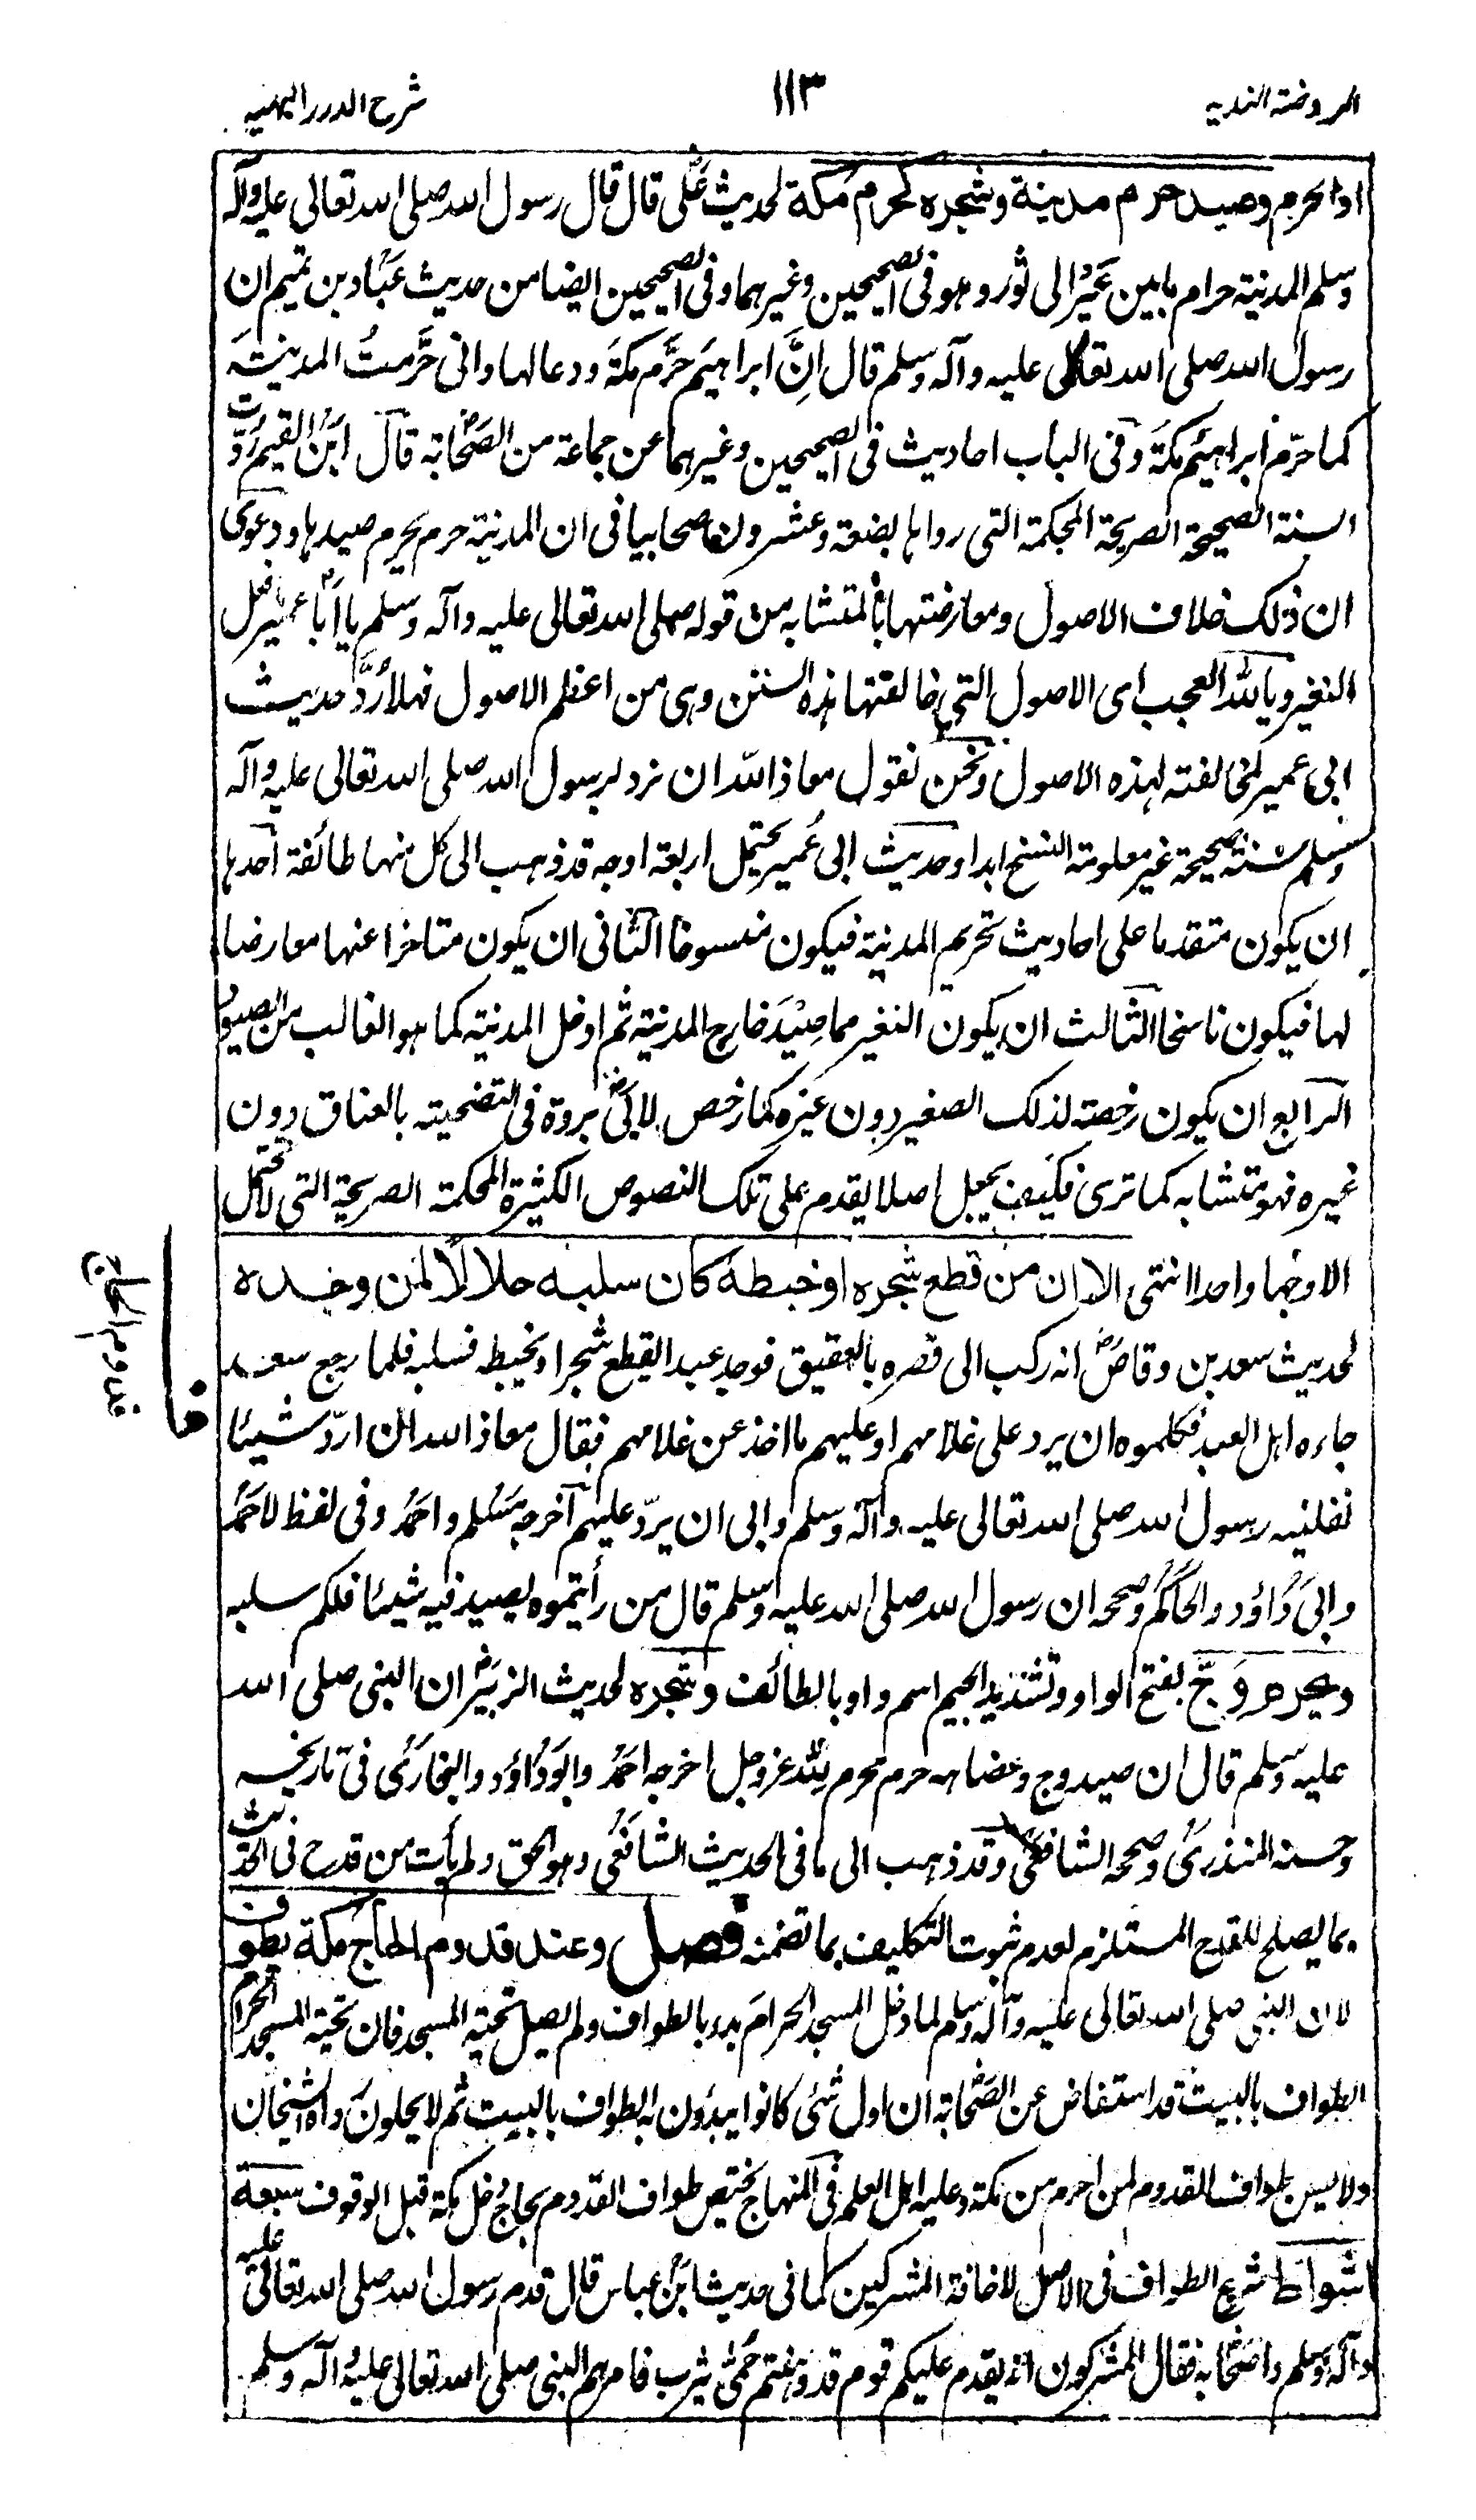 الروضة الندية
١١٣
شرح الدرر البهية
او الحرم وصيد حرم مدينة وشجره كحرم مكة لحديث علي قال قال رسول الله صلى الله تعالى عليه وآله
وسلم المدينة حرام ما بين عير الى ثور وهو فى الصحيحين وغيرهما وفى الصحيحين ايضا من حديث عباد بن تميم ان
رسول الله صلى الله تعالى عليه وآله وسلم قال إنَّ ابراهيم حَرَّم مكةَ ودعا لها وانى حَرَّمتُ المدينة
كما حرّم ابراهيم مكة وفى الباب احاديث فى الصحيحين وغيرهما عن جماعة من الصحابة قال ابن القيم رُدَّت
السنة الصحيحة الصريحة المحكمة التى رواها بضعة وعشرون صحابيا فى ان المدينة حرم يحرم صيدها ودعوى
ان ذلك خلاف الاصول ومعارضتها بالمتشابه من قوله صلى الله تعالى عليه وآله وسلم يا أبا عمير ما فعل
النغير ويا لله العجب اى الاصول التى خالفتها هذه السنن وهى من اعظم الاصول فهلا رُدَّ حديث
ابى عمير لمخالفته لهذه الاصول ونحن نقول معاذ الله ان نرد لرسول الله صلى الله تعالى عليه وآله
وسلم سنة صحيحة غير معلومة النسخ ابدا وحديث ابى عُمير يحتمل اربعة اوجه قد ذهب الى كل منها طائفة احدها
ان يكون متقدما على احاديث تحريم المدينة فيكون منسوخا الثانى ان يكون متاخرا عنها معارضا
لها فيكون ناسخا الثالث ان يكون النغير مما صِيْدَ خارج المدينة ثم ادخل المدينة كما هو الغالب من الصيود
الرابع ان يكون رخصة لذلك الصغير دون غيره كما رخص لابى بروة فى التضحية بالعناق دون
غيره فهو متشابه كما ترى فكيف يجعل اصلا يقدم على تلك النصوص الكثيرة المحكمة الصريحة التى لا تحتمل
الا وجها واحدا انتهى الا ان من قطع شجره او خبطه كان سلبه حلالا لمن وجده
لحديث سعد بن وقاص انه ركب الى قصره بالعقيق فوجد عبدا يقطع شجرا او يخبطه فسلبه فلما رجع سعد
جاءه اهل العبد فكلموه ان يرد على غلامهم او عليهم ما اخذ عن غلامهم فقال معاذ الله ان اردّ شيئا
نفلنيه رسول الله صلى الله تعالى عليه وآله وسلم وابى ان يردّ عليهم آخرجه مسلم واحمد وفى لفظ لاحمد
وابى داؤد والحاكم وصححه ان رسول الله صلى الله عليه وسلم قال من رأيتموه يصيد فيه شيئا فلكم سلبه
ويحرم وَجّ بفتح الواو وتشديد الجيم اسم واد بالطائف وشجره لحديث الزبير ان النبى صلى الله
عليه وسلم قال ان صيد وج وعضاهه حرم محرم لله عز وجل اخرجه احمد وابو داؤد والبخارى فى تاريخه
وحسنه المنذرى وصححه الشافعى وقد ذهب الى ما فى الحديث الشافعى وهو الحق ولم يأت من قدح فى الحديث
بما يصلح للقدح المستلزم لعدم ثبوت التكليف بما تضمنه فصل وعند قدوم الحاج مكة يطوف
لان النبى صلى الله تعالى عليه وآله وسلم لما دخل المسجد الحرام بدء بالطواف ولم يصل تحية المسجد فان تحية المسجد الحرام
الطواف بالبيت قد استفاض عن الصحابة ان اول شئ كانوا يبدؤن به الطواف بالبيت ثم لا يحلون رواه الشيخان
ولا يسن طواف القدوم لمن احرم من مكة وعليه اهل العلم فى المنهاج يختص طواف القدوم بحاج دخل مكة قبل الوقوف سبعة
اشواط شرع الطواف فى الاصل لاخافة المشركين كما فى حديث ابن عباس قال قدم رسول الله صلى الله تعالى عليه
وآله وسلم واصحابه فقال المشركون انه يقدم عليكم قوم قد وهنتم حمى يثرب فامرهم النبى صلى الله تعالى عليه وآله وسلم